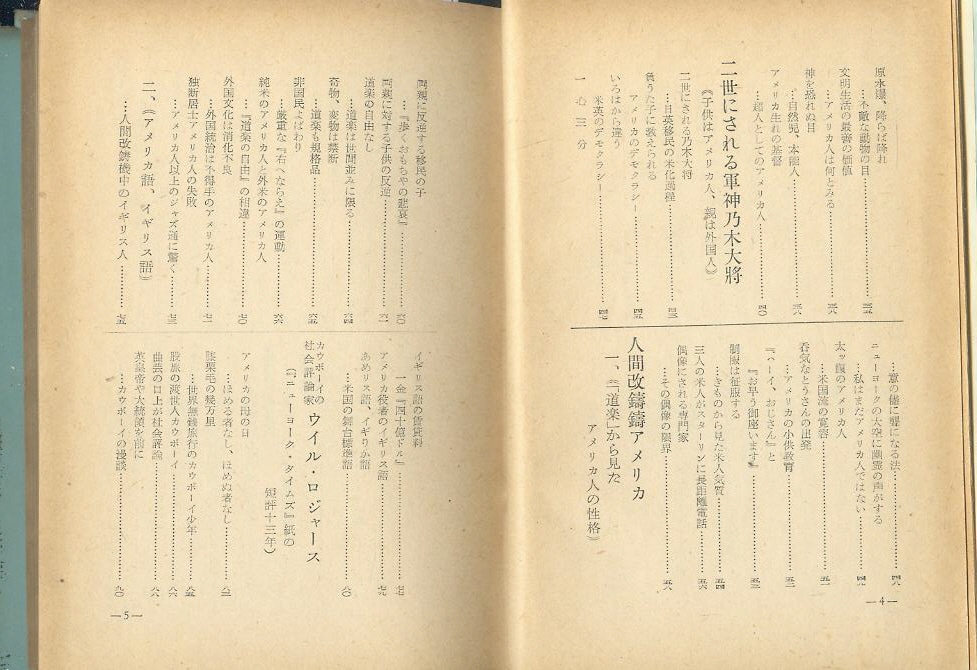 原水爆、降らば降れ
……不敵な動物の目……三五
文明生活の最善の価値
……アメリカ人は何とみる……三八
神を恐れぬ目
……自然児、本能人……三八
アメリカ生れの基督
……超人としてのアメリカ人……四〇
二世にされる軍神乃木大將
(子供はアメリカ人、親は外国人)
二世にされる乃木大将
……日英移民の米化過程……四三
負うた子に教えられる
アメリカのデモクラシー……四五
いろはから違う
米英のデモクラシー……四七
一心三分
……意の儘に聾になる法……四八
ニューヨークの大空に幽霊の声がする
……私はまだアメリカ人ではない……四八
太ッ腹のアメリカ人
……米国流の寛容……五一
呑気なとうさんの出発
……アメリカの小供教育……五二
『ハーイ、おじさん』と
『お早う御座います』……五三
制服は征服する
……きものから見た米人気質……五四
三人の米人がスターリンに長距離電話……五六
偶像にされる専門家
……その偶像の限界……五八
人間改鑄鑄アメリカ
一、(「道楽」から見た
アメリカ人の性格)
—4—
両親に反逆する移民の子
……『歩くおもちゃの悲哀』……六〇
両親に対する子供の反逆……六一
道楽の自由なし
……道楽は世間並みに限る……六四
奇物、変物は禁断
……道楽も規格品……六五
非国民よばわり
……厳重な『右へならえ』の運動……六六
純米のアメリカ人と外米のアメリカ人
……『道楽の自由』の相違……七〇
外国文化は消化不良
……外国統治は不得手のアメリカ人……七一
独断居士アメリカ人の失敗
……アメリカ人以上のジャズ通に驚く……七三
二、(アメリカ語、イギリス語)
……人間改鑄機中のイギリス人……七五
イギリス語の賃貸料
……一金『四十億ドル』……七七
アメリカ役者のイギリス語……七九
あめリス語、イギりか語
……米国の舞台標準語……八〇
カウボーイの
社会評論家 ウイル・ロジャース
(『ニューヨーク・タイムズ』紙の
短評十三年)
アメリカの母の日
……ほめる者なし、ほめぬ者なし……八三
膝栗毛の幾万里
……世界無銭旅行のカウボーイ少年……八五
股旅の渡世人カウボーイ……八六
曲芸の口上が社会評論……八八
英皇帝や大統領を前に
……カウボーイの漫談……九〇
—5—